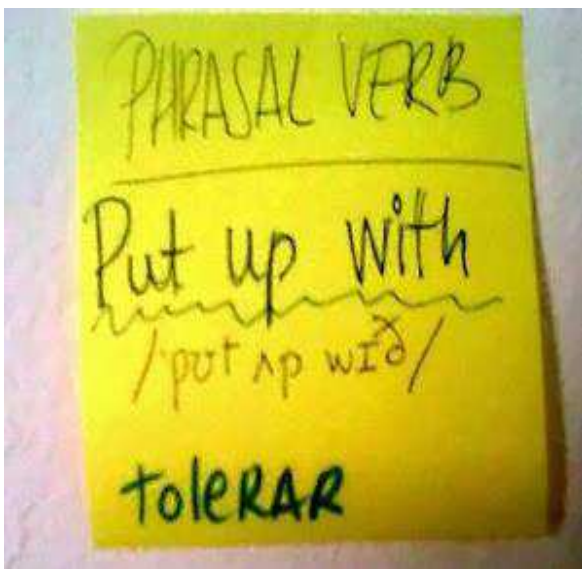 PHRASAL VERB
Put up with
/pʊt ʌp wɪð/
toleRAR